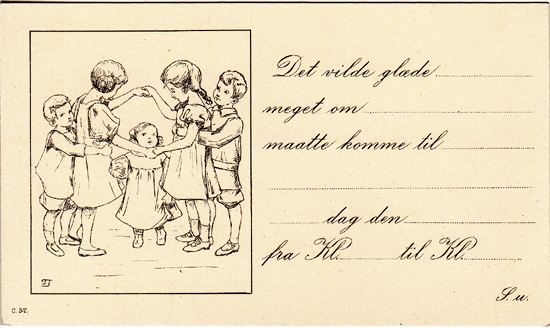 Det vilde glæde
meget om
maatte komme til
dag den
fra Kl. til Kl.
S. u.